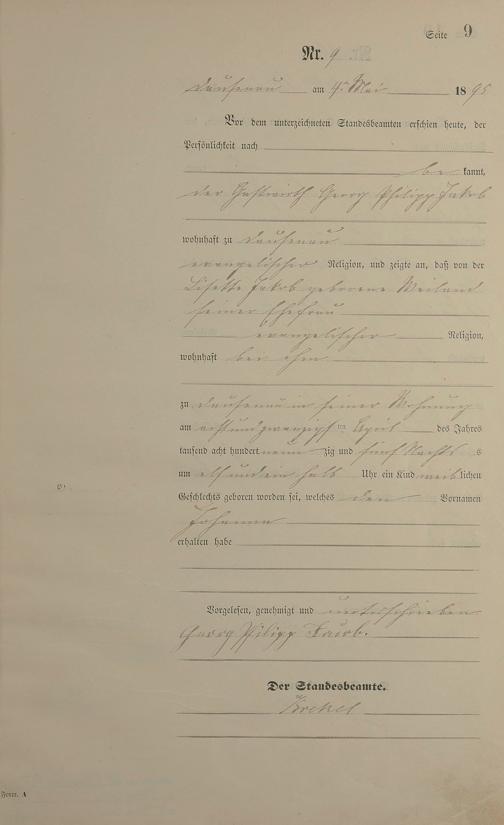 Seite 9
Nr. 9
Dausenau am 4ten Mai 1895
Vor dem unterzeichneten Standesbeamten erschien heute, der
Persönlichkeit nach
be kannt,
der Gastwirth Georg Philipp Jakob
wohnhaft zu Dausenau
evangelischer Religion, und zeigte an, daß von der
Lisette Jakob geborene Weiland
seiner Ehefrau
evangelischer Religion,
wohnhaft bei ihm
zu Dausenau in seiner Wohnung
am ten April des Jahres
tausend acht hundert neun zig und fünf Nachts s
um elf und ein halb Uhr ein Kind weib lichen
Geschlechts geboren worden sei, welches den Vornamen
Johanna
erhalten habe
Vorgelesen, genehmigt und unterschrieben
Georg Philipp Jacob.
Der Standesbeamte.
Form. A